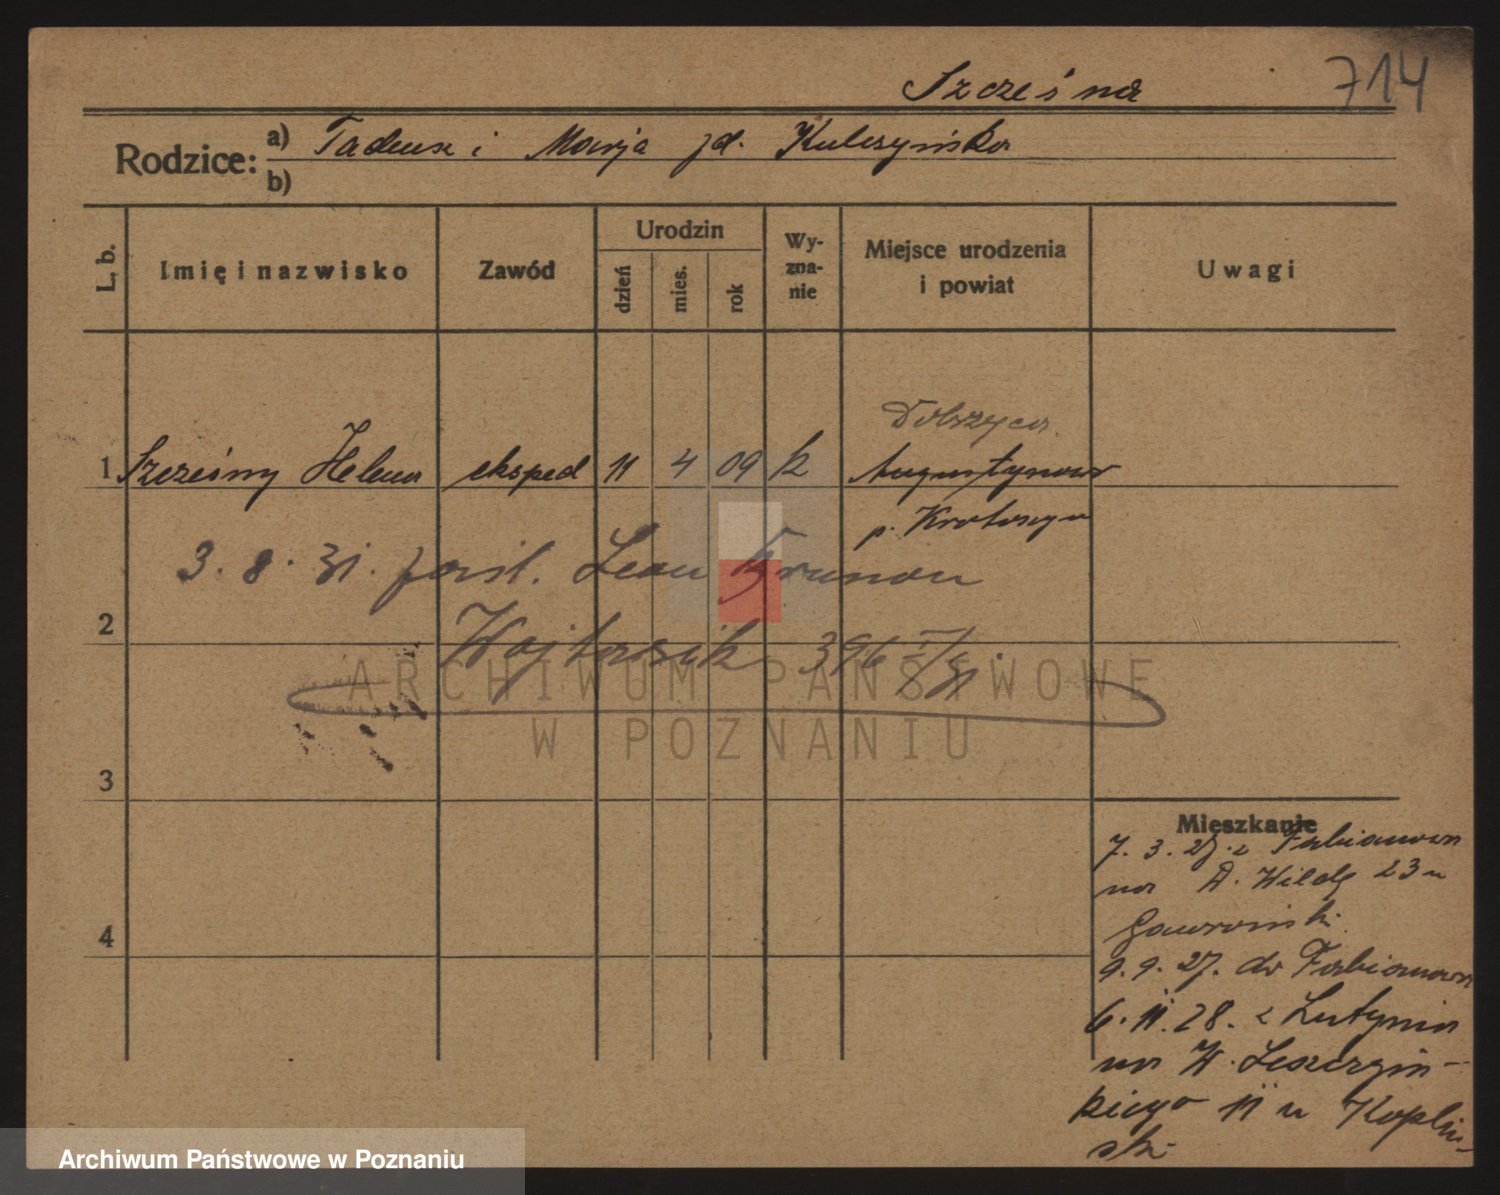 Szcześna 714
Rodzice: a) Tadeusz i Marja zd. Kulczyńska
b)
L. b. Imię i nazwisko Zawód Urodzin Wy-zna-nie Miejsce urodzenia i powiat Uwagi
dzień mies. rok
Dobrzyca
1 Szcześny Helena eksped 11 4 09 k Augustynowo
p. Krotoszyn
3. 8. 31. zaśl. Leon
2 Wojtasik 396
ARCHIWUM PAŃSTWOWE
W POZNANIU
3
Mieszkanie
7. 3. 27. z Fabianowa
na W. Wildę 23 u
Gawroński.
4
9. 9. 27. do Fabianowa
6. 11. 28. z Lutynia
na W. Leszczyń-
skiego 11 u Kopliń-
ski
Archiwum Państwowe w Poznaniu